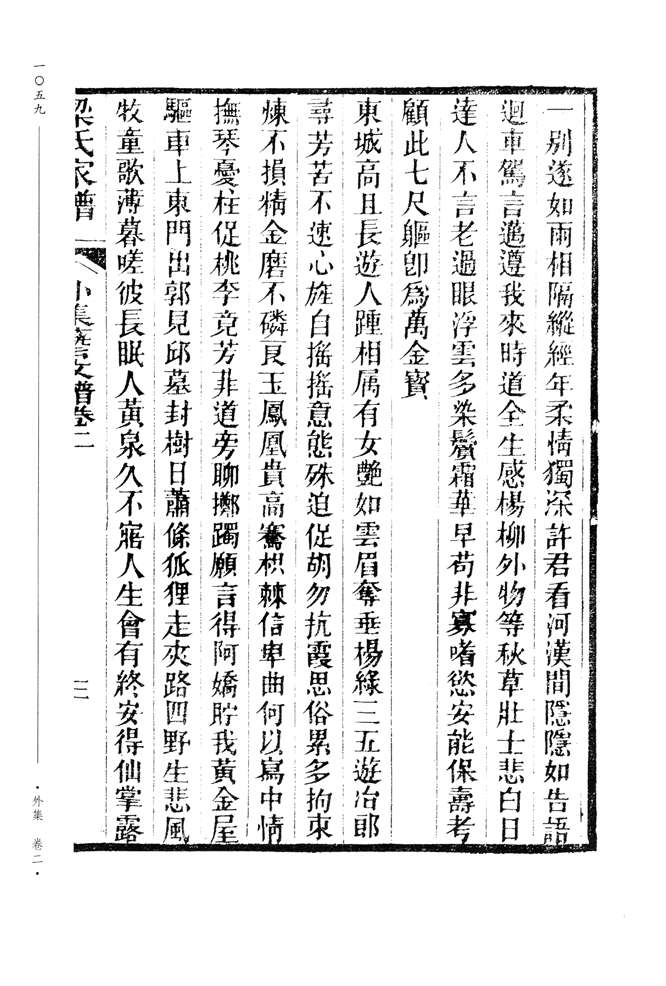 一別遂如雨相隔縱經年柔情獨深許君看河漢間隱隱如告語
迴車駕言邁遵我來時道全生感楊柳外物等秋草壯士悲白日
達人不言老過眼浮雲多染鬢霜華早苟非寡嗜慾安能保壽考
顧此七尺軀卽爲萬金寳
東城高且長遊人踵相属有女艷如雲眉奪垂楊綠三五遊冶郎
尋芳苦不速心旌自搖搖意態殊迫促胡勿抗霞思俗累多拘束
煉不損精金磨不磷良玉鳳凰貴高騫枳棘信卑曲何以寫中情
撫琴憂柱促桃李竟芳菲道旁聊擲躅願言得阿嬌貯我黃金屋
驅車上東門出郭見邱墓封樹日蕭條狐狸走夾路四野生悲風
牧童歌薄暮嗟彼長眠人黃泉久不寤人生會有終安得仙掌露
梁氏家譜 外集藝文譜卷二 二
一〇五九
·外集 卷二·